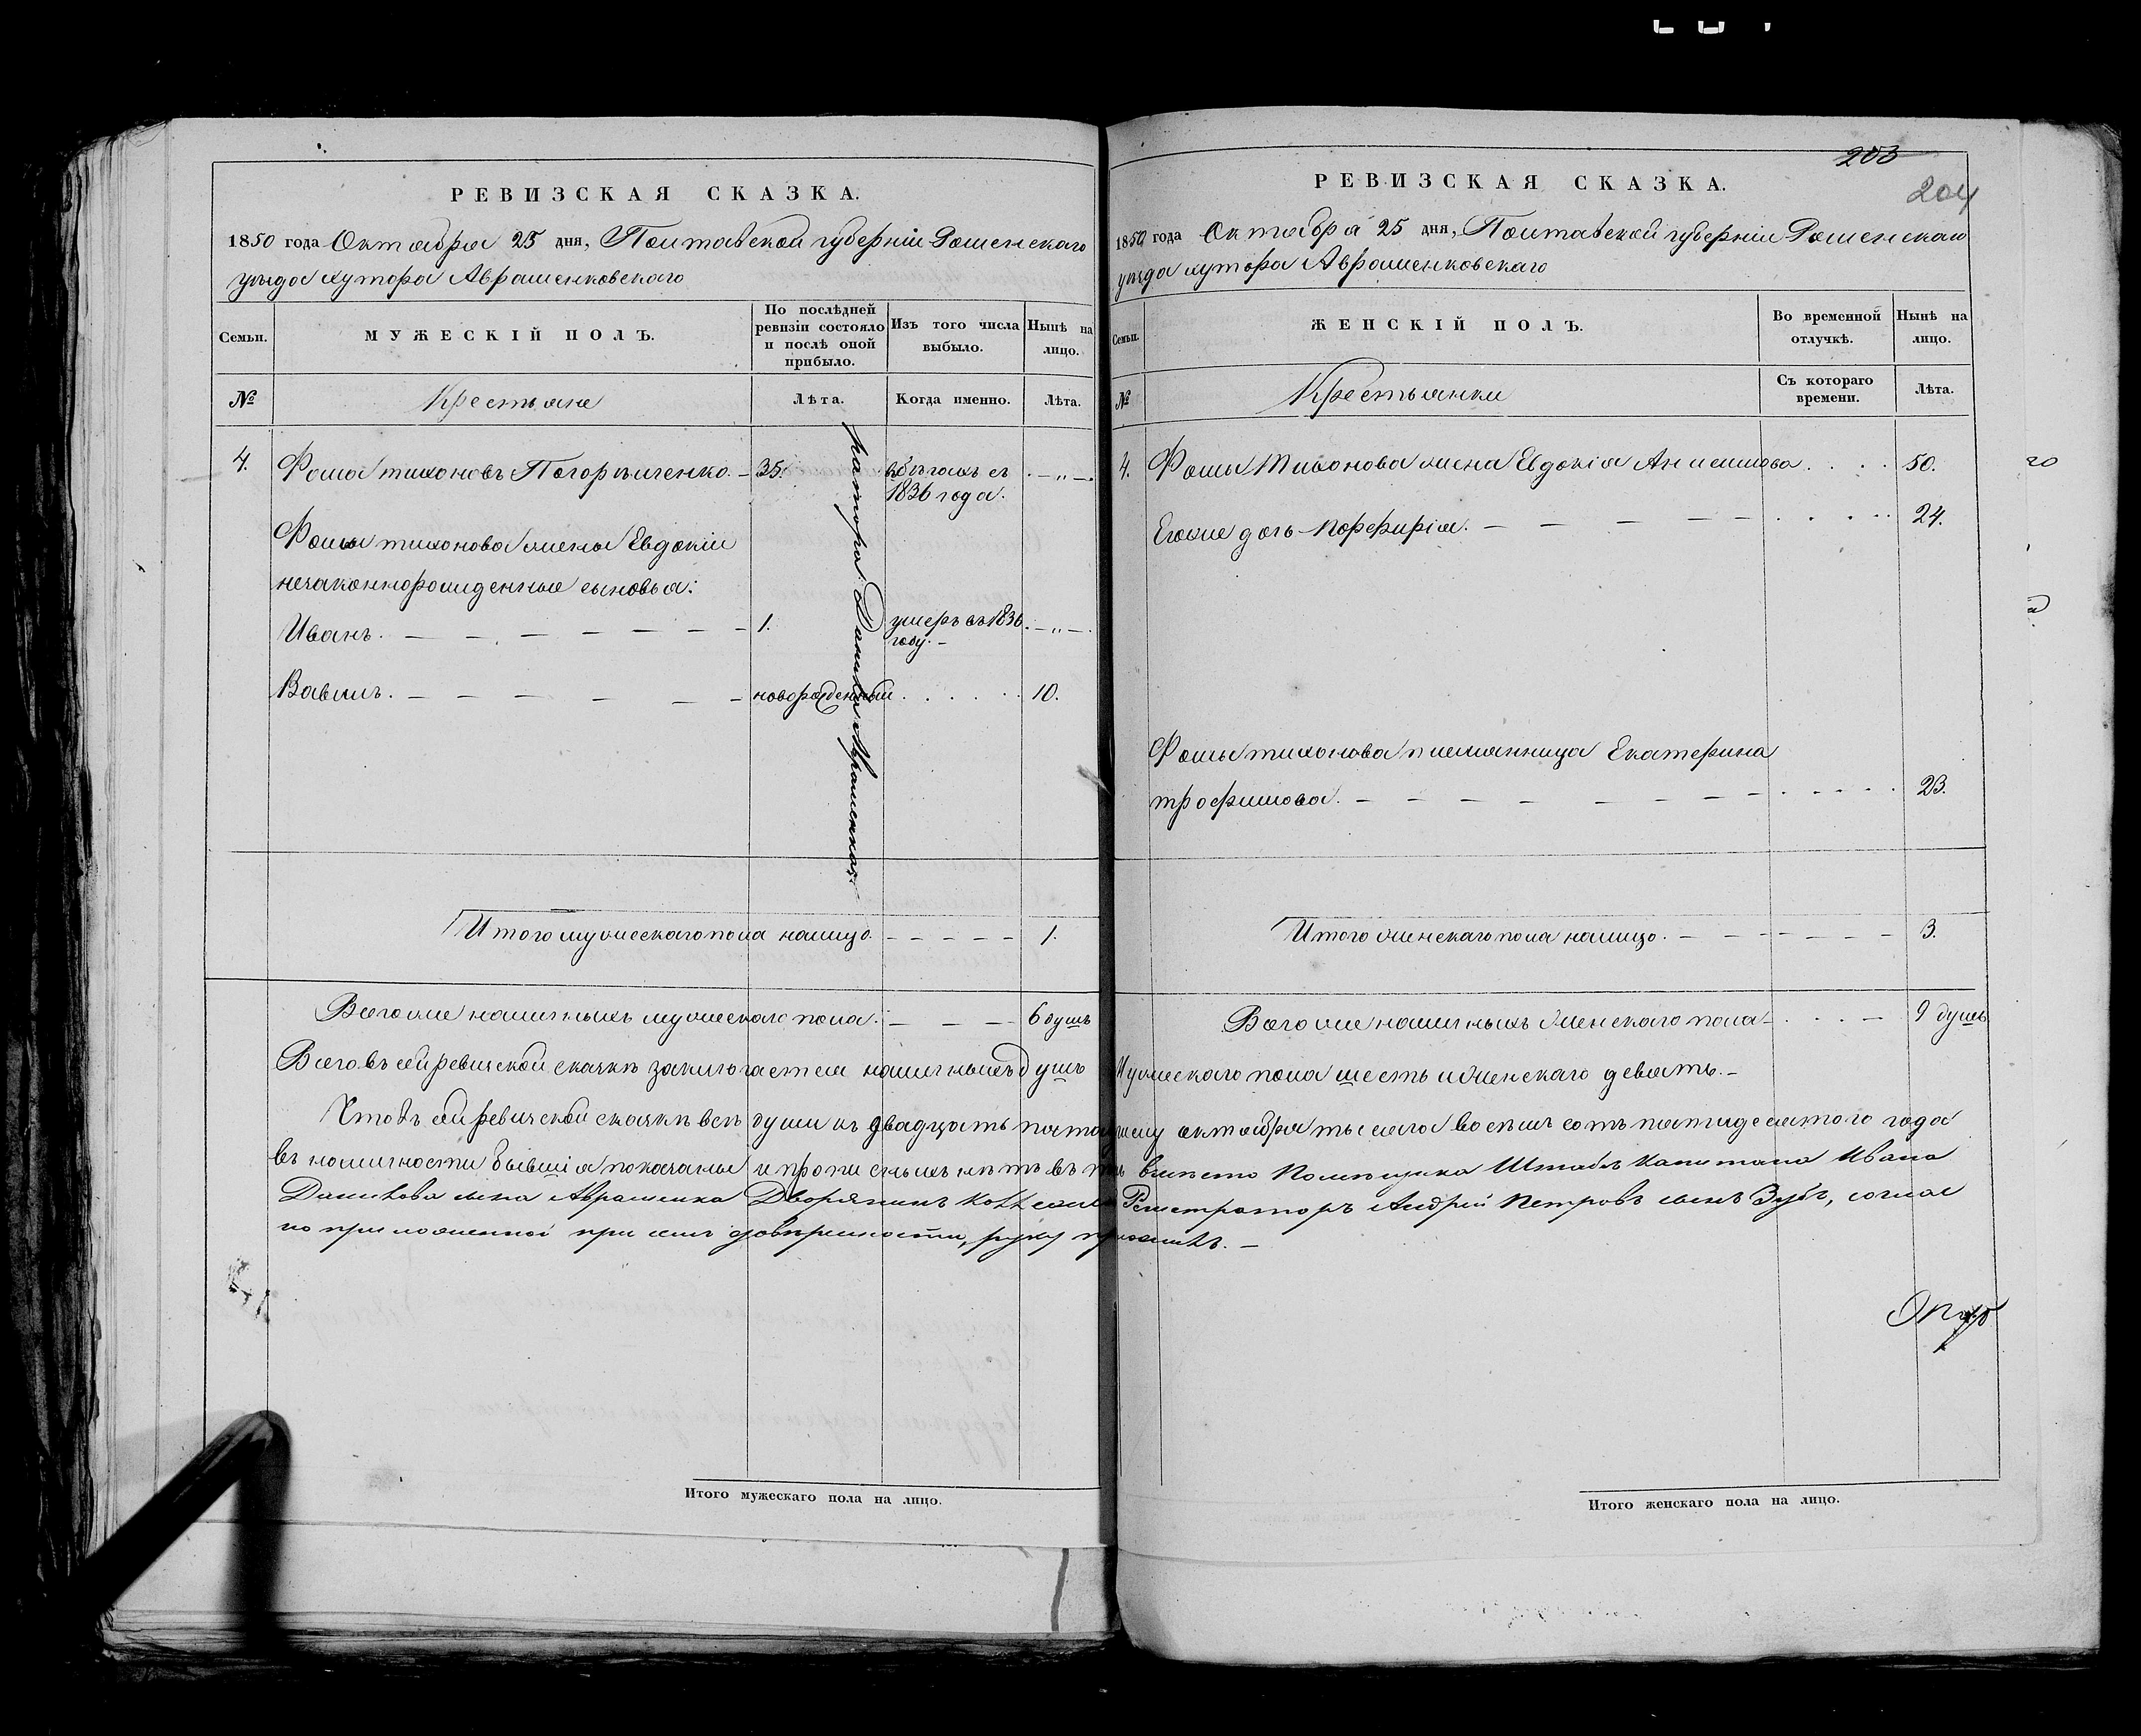 РЕВИЗСКАЯ СКАЗКА.
1850 года Октября 25 дня, Полтавской губерніи Роменскаго
уѣзда хутора Аврашенковскаго
Семьи.
МУЖЕСКІЙ ПОЛЪ.
По послѣдней ревизіи состояло и послѣ оной прибыло.
Изъ того числа выбыло.
Нынѣ на лицо.
№
Крестьяне
Лѣта.
Когда именно.
Лѣта.
4. Фома тихоновъ Погорѣльченко. — 35. въ бѣгахъ съ — „ —.
1836 года.
Фомы тихонова жены Евдокіи
незаконнорожденные сыновья:
Иванъ. — — — — — — — 1. умеръ въ 1836 — „ —.
году. —
Вавилъ. — — — — — — новорожденный . . . . . 10.
Данила Аврашенка.
Итого мужескаго пола налицо. — — — — — 1.
Всего же наличныхъ мужескаго пола. — — — 6 душъ
РЕВИЗСКАЯ СКАЗКА.
203
204
1850 года Октября 25 дня, Полтавской губерніи Роменскаго
уѣзда хутора Аврашенковскаго
Семьи.
ЖЕНСКІЙ ПОЛЪ.
Во временной отлучкѣ.
Нынѣ на лицо.
№
Крестьянки
Съ котораго времени.
Лѣта.
4. Фомы Тихонова жена Евдокія Анисимова . . . . 50.
Его же дочь Порфирія. — — — — — . . . . 24.
Фомы тихонова племянница Екатерина
трофимова. — — — — — — — — . . . . 23.
Итого женскаго пола налицо. — — — — — — — 3.
Всего же наличныхъ женскаго пола — . . . — 9 душъ
Всего въ сей ревизской сказкѣ заключается наличныхъ душъ Мужескаго пола шесть и женскаго девять. —
Что въ сей ревизской сказкѣ всѣ души къ двадцать пятому октября тысяча восемь сотъ пятидесятого года
въ наличности бывшія показаны и прописныхъ нѣтъ в вмѣсто Помѣщика Штабсъ Капитана Ивана
Данилова сына Аврашенка Дворянинъ Коллежскій Регистраторъ Андрей Петровъ сынъ Зубъ, соглас
но приложенной при семъ довѣренности, руку приложилъ. —
Итого мужескаго пола на лицо.
Итого женскаго пола на лицо.